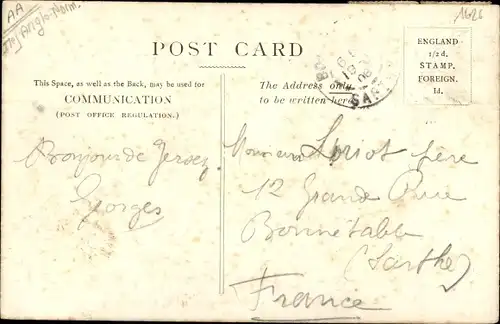 AA
Anglo-Norm.
1626
POST CARD
This Space, as well as the Back, may be used for
COMMUNICATION
(POST OFFICE REGULATION.)
The Address only
to be written here
ENGLAND
1/2d.
STAMP.
FOREIGN.
1d.
SAR
Bonjour de Jersey
Georges
Monsieur Loriot père
12 Grande Rue
Bonnétable
(Sarthe)
France